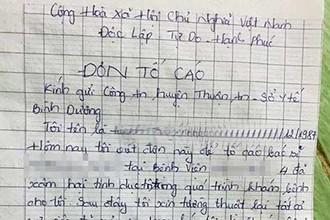 Cộng Hoà Xã Hội Chủ Nghĩa Việt Nam
Độc Lập Tự Do - Hạnh Phúc
ĐƠN TỐ CÁO
Kính gửi Công an huyện Thuận An - Sở Y tế
Bình Dương
Tôi tên là 12/1987
Hôm nay tôi viết đơn này để tố cáo bác sĩ
tại Bệnh Viện 4 đã
xâm hại tình dục trong quá trình khám bệnh
cho tôi. Sau đây tôi xin tường thuật lại tất cả